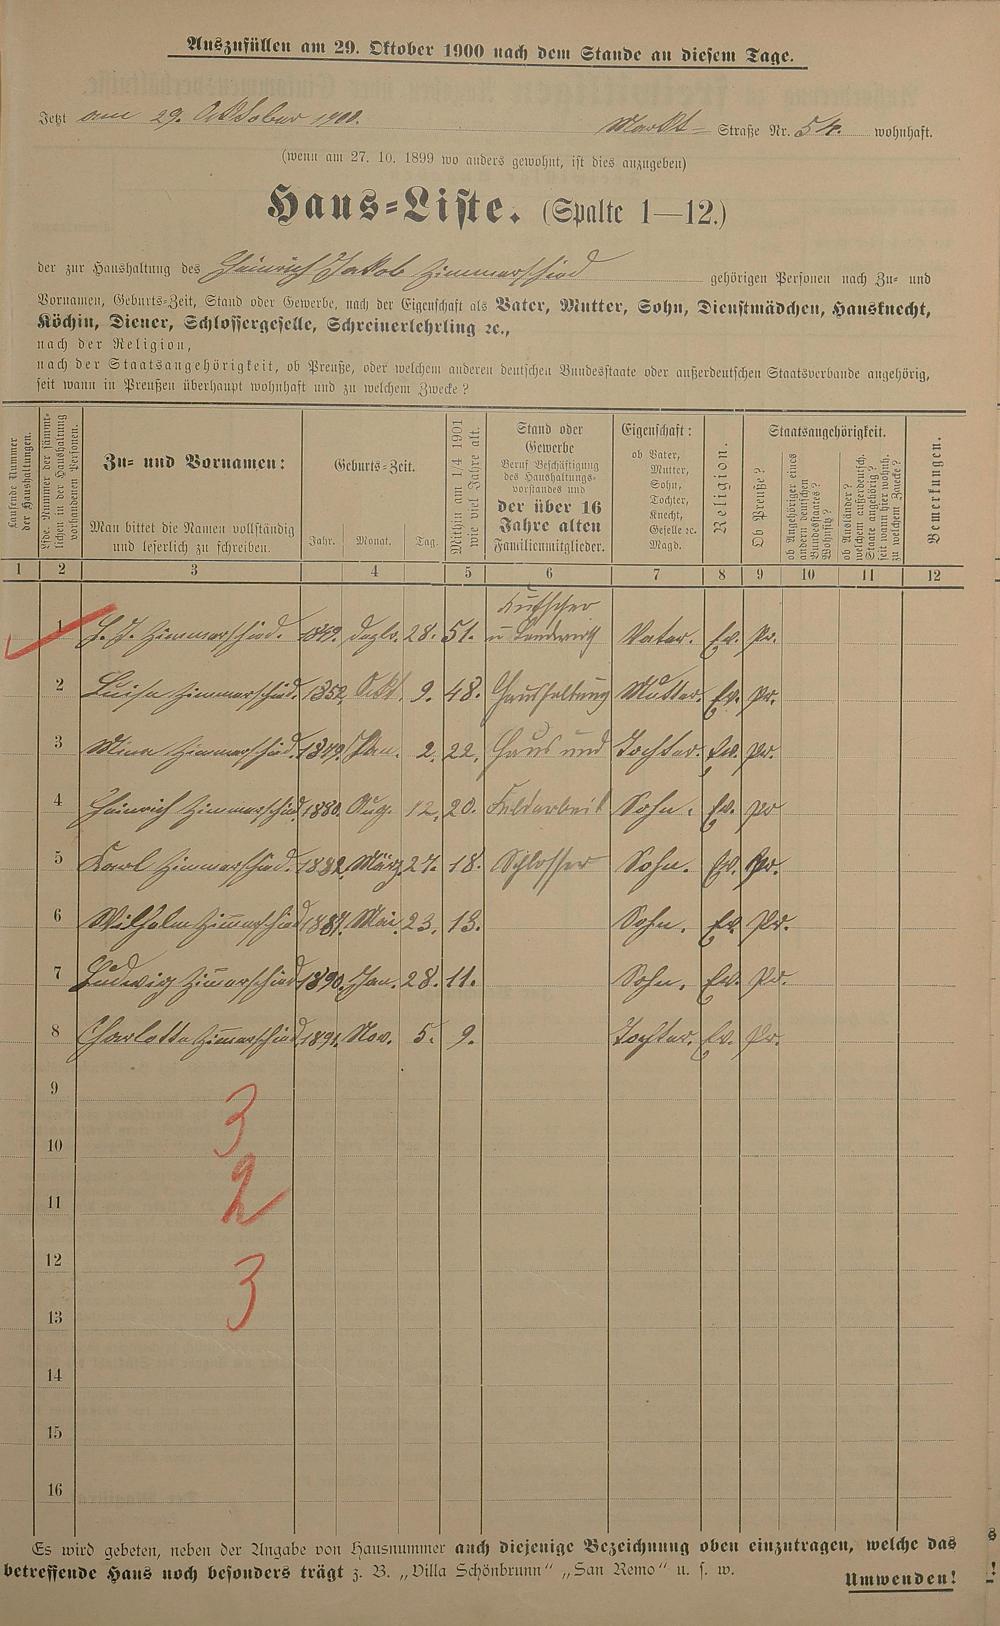 Auszufüllen am 29. Oktober 1900 nach dem Stande an diesem Tage.
Jetzt am 29. Oktober 1900. Markt- Straße Nr. 54. wohnhaft.
(wenn am 27. 10. 1899 wo anders gewohnt, ist dies anzugeben)
Haus-Liste. (Spalte 1—12.)
der zur Haushaltung des Heinrich Jakob Zimmerschied gehörigen Personen nach Zu- und
Vornamen, Geburts-Zeit, Stand oder Gewerbe, nach der Eigenschaft als Vater, Mutter, Sohn, Dienstmädchen, Hausknecht,
Köchin, Diener, Schlossergeselle, Schreinerlehrling ꝛc.,
nach der Religion,
nach der Staatsangehörigkeit, ob Preuße, oder welchem anderen deutschen Bundesstaate oder außerdeutschen Staatsverbande angehörig,
seit wann in Preußen überhaupt wohnhaft und zu welchem Zwecke?
Laufende Nummer der Haushaltungen.
Lfde. Nummer der sämmtlichen in der Haushaltung vorhandenen Personen.
Zu- und Vornamen:
Man bittet die Namen vollständig
und leserlich zu schreiben.
Geburts-Zeit.
Jahr. Monat. Tag.
Mithin am 1/4 1901 wie viel Jahre alt.
Stand oder
Gewerbe
Beruf Beschäftigung
des Haushaltungs-
vorstandes und
der über 16
Jahre alten
Familienmitglieder.
Eigenschaft:
ob Vater,
Mutter,
Sohn,
Tochter,
Knecht,
Geselle ꝛc.
Magd.
Religion.
Staatsangehörigkeit.
Ob Preuße?
ob Angehöriger eines andern deutschen Bundesstaates? Wohnsitz?
ob Ausländer? welchem außerdeutsch. Staate angehörig? seit wann hier wohnh. zu welchem Zwecke?
Bemerkungen.
1 2 3 4 5 6 7 8 9 10 11 12
1 H. J. Zimmerschied. 1849. Dezbr. 28. 51. Kutscher u Landwirth Vater. Ev. Pr.
2 Luise Zimmerschied. 1852. Okt. 9. 48. Haushaltung Mutter. Ev. Pr.
3 Mina Zimmerschied. 1879. Jan. 2. 22. Haus und Tochter. Ev. Pr.
4 Heinrich Zimmerschied. 1880. Aug. 12. 20. Feldarbeit Sohn. Ev. Pr
5 Karl Zimmerschied. 1882. März 27. 18. Schlosser Sohn. Ev. Pr.
6 Wilhelm Zimmerschied 1887. Mai. 23. 13. Sohn. Ev. Pr.
7 Ludwig Zimmerschied 1890. Jan. 28. 11. Sohn. Ev. Pr.
8 Charlotte Zimmerschied 1891. Nov. 5. 9. Tochter. Ev. Pr.
9
3
10
2
11
12
3
13
14
15
16
Es wird gebeten, neben der Angabe von Hausnummer auch diejenige Bezeichnung oben einzutragen, welche das
betreffende Haus noch besonders trägt z. B. „Villa Schönbrunn“ „San Remo“ u. s. w.
Umwenden!